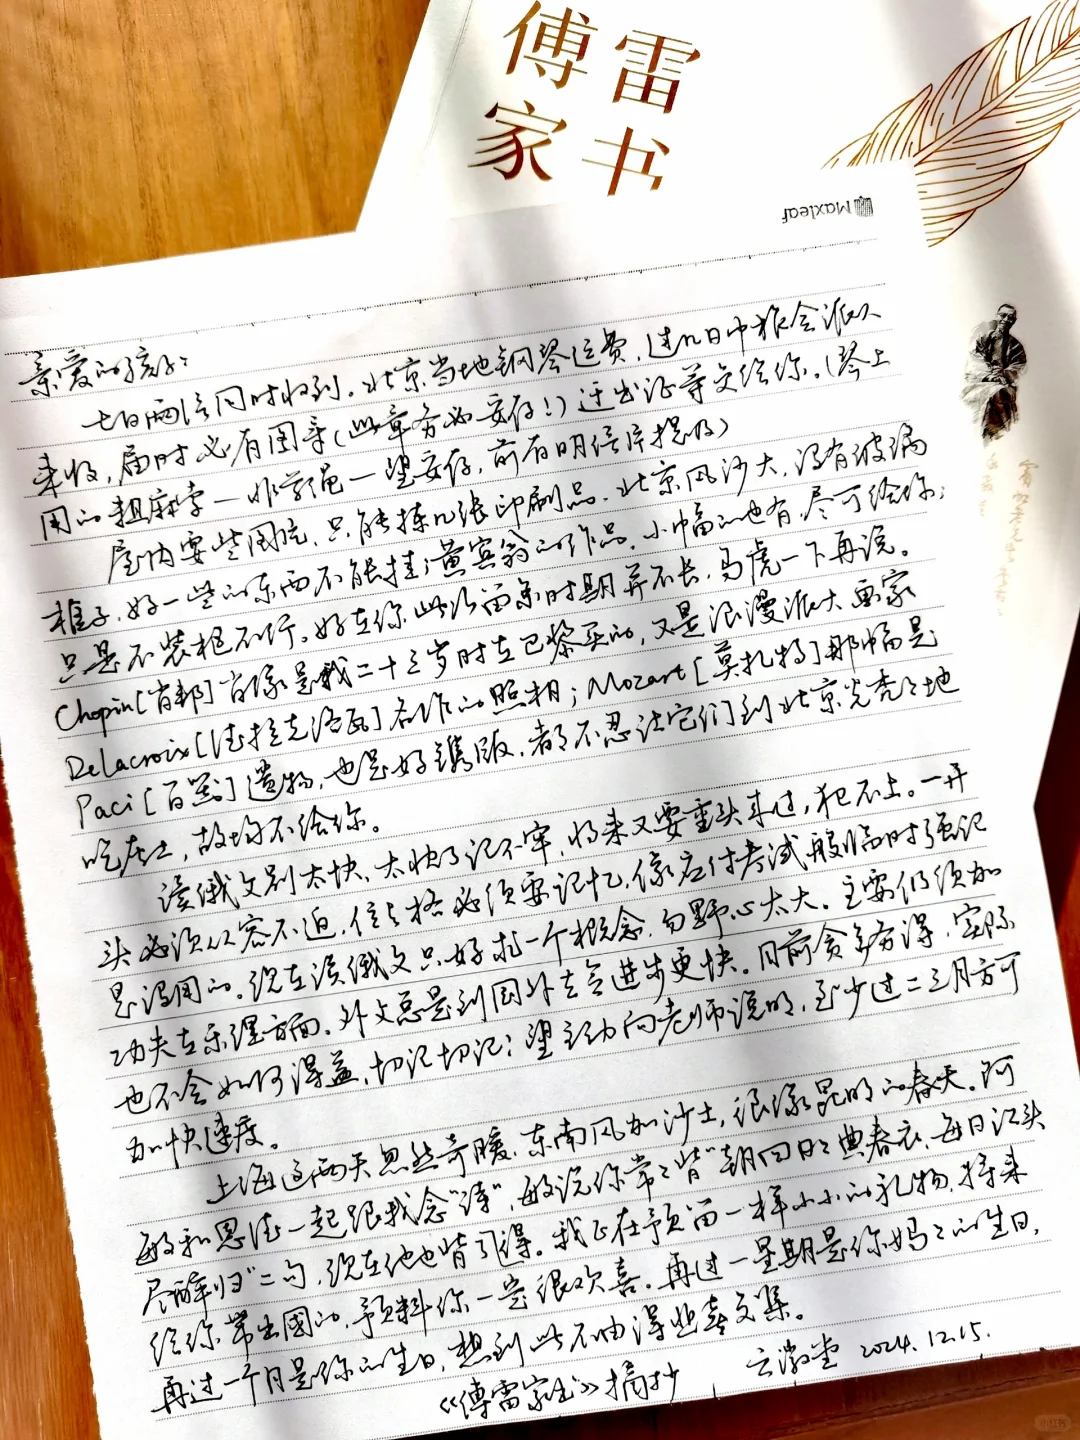 傅雷
家书
Maxleaf
亲爱的孩子：
七日两信同时收到。北京当地钢琴运费，过几日中旅会派人
来收，届时必有图章（此章务必妥存！）迁出证等交给你。（琴上
用的粗麻李—非常绳—望妥存，前有明信片提及）
屋内要些图画，只能拣几张印刷品。北京风沙大，没有玻璃
框子，好一些的东西不能挂；黄宾翁的作品，小幅的也有，尽可给你；
只是不装框不行。好在你此次留京时期并不长，马虎一下再说。
Chopin[肖邦]肖像是我二十三岁时在巴黎买的，又是浪漫派大画家
Delacroix[德拉克洛瓦]名作的照相；Mozart[莫扎特]那幅是
Paci[百器]遗物，也是好镌版，都不忍让它们到北京光秃秃地
吃灰土，故均不给你。
读俄文别太快，太快了记不牢，将来又要重头来过，犯不上。一开
头必须从容不迫，位与格必须要记忆，像应付考试般临时强记
是没用的。现在读俄文只好求一个概念，勿野心太大。主要仍须加
功夫在乐理方面。外文总是到国外去会进步更快。目前贪多务得，实际
也不会如何得益，切记切记！望主动向老师说明，至少过二三月方可
加快速度。
上海这两天忽然奇暖，东南风加沙土，很像昆明的春天。阿
敏和恩德一起跟我念“诗”，敏说你常常背“朝回日日典春衣，每日江头
尽醉归”二句，现在他也背得了。我正在预备一样小小的礼物，将来
给你带出国的，预料你一定很欢喜。再过一星期是你妈妈的生日，
再过一个月是你的生日，想到此不由得悲喜交集。
《傅雷家书》摘抄
2024.12.15.
小红书